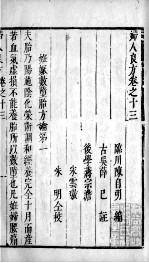 婦人良方卷之十三
臨川陳自明 編
古吳薛己 註
後學蔣宗澹
朱雲徵
朱明 仝校
姙娠數墮胎方論第一
夫胎乃陽施陰化榮衛調和經養完全十月而産
若血氣虛損不能養胎所以數墮也凡姙婦腰痛